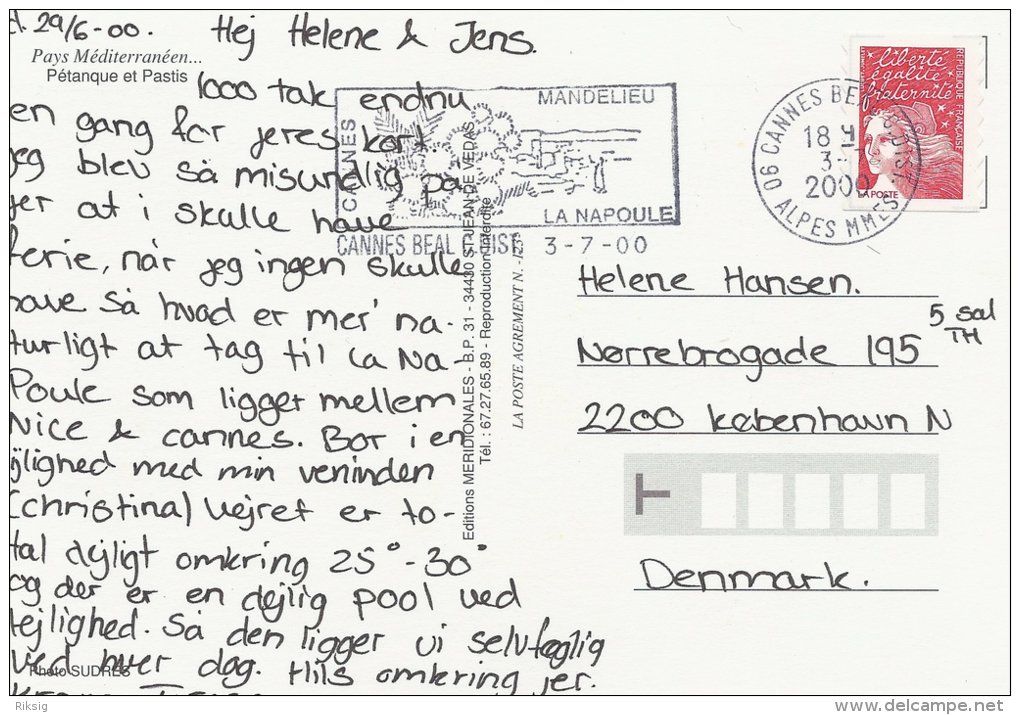 d. 29/6-00.
Hej Helene & Jens.
Pays Méditerranéen...
Pétanque et Pastis
1000 tak endnu
en gang for jeres kort
jeg blev så misundlig på
jer at i skulle have
ferie, når jeg ingen skulle
have så hvad er mer' na-
turligt at tag til La Na-
Poule som ligger mellem
Nice & cannes. Bor i en
ejlighed med min veninden
(christina) Vejret er to-
tal dejligt omkring 25°-30°
og der er en dejlig pool ved
lejlighed. Så den ligger vi selvføglig
ved hver dag. Hils omkring jer.
Photo SUDRES
CANNES
MANDELIEU
LA NAPOULE
CANNES BEAL 3-7-00
Editions MERIDIONALES - B.P. 31 - 34430 ST JEAN DE VEDAS
Tél. : 67.27.65.89 - Reproduction interdite
LA POSTE AGREMENT N.
06 CANNES
18 H
3-
2000
ALPES MMES
liberté
égalité
fraternité
REPUBLIQUE FRANÇAISE
LA POSTE
Helene Hansen.
Nørrebrogade 195 5 sal
TH
2200 København N
T
Denmark.
Riksig
delcampe.net